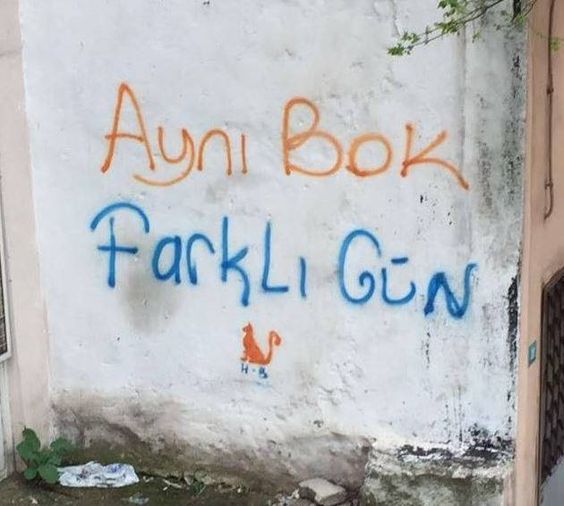 Aynı Bok
Farklı Gün
H-B